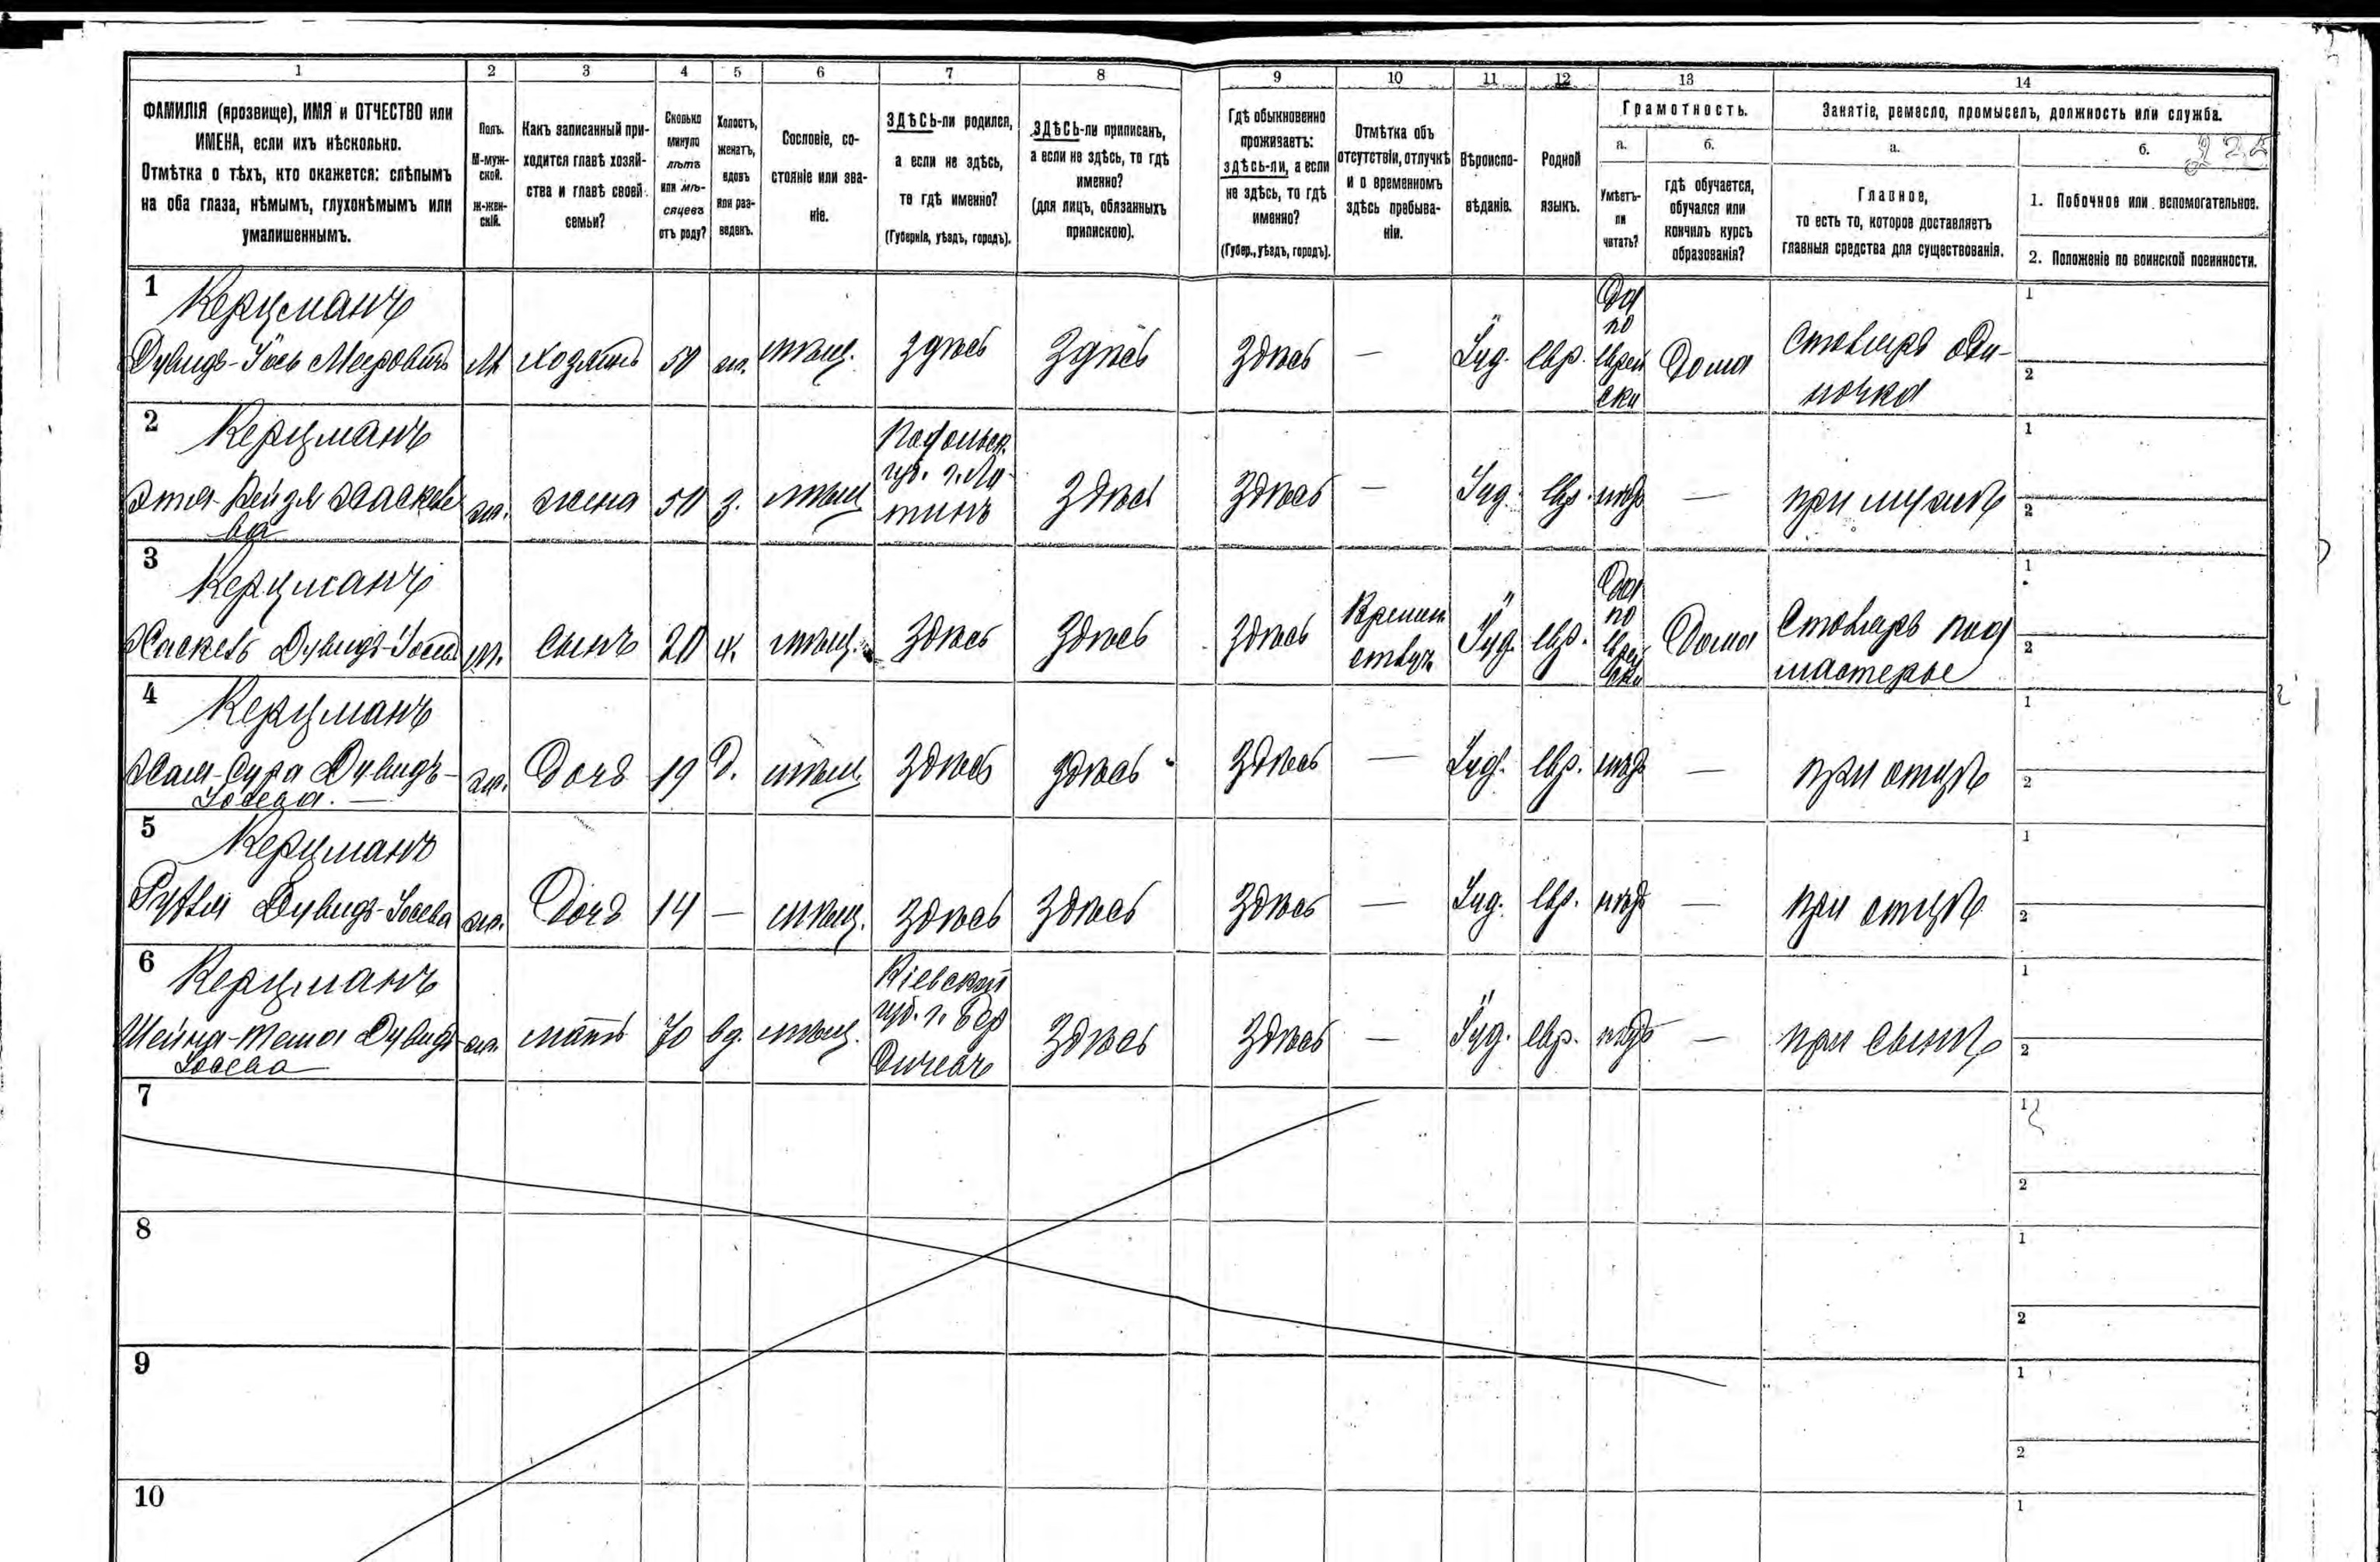 1 2 3 4 5 6 7 8 9 10 11 12 13 14
ФАМИЛІЯ (прозвище), ИМЯ и ОТЧЕСТВО или
ИМЕНА, если ихъ нѣсколько.
Отмѣтка о тѣхъ, кто окажется: слѣпымъ
на оба глаза, нѣмымъ, глухонѣмымъ или
умалишеннымъ.
Полъ.
М-муж-
ской.
Ж-жен-
скій.
Какъ записанный при-
ходится главѣ хозяй-
ства и главѣ своей
семьи?
Сколько
минуло
лѣтъ
или мѣ-
сяцевъ
отъ роду?
Холостъ,
женатъ,
вдовъ
или раз-
веденъ.
Сословіе, со-
стояніе или зва-
ніе.
ЗДѢСЬ-ли родился,
а если не здѣсь,
то гдѣ именно?
(Губернія, уѣздъ, городъ).
ЗДѢСЬ-ли приписанъ,
а если не здѣсь, то гдѣ
именно?
(для лицъ, обязанныхъ
припискою).
Гдѣ обыкновенно
проживаетъ:
здѣсь-ли, а если
не здѣсь, то гдѣ
именно?
(Губер., уѣздъ, городъ).
Отмѣтка объ
отсутствіи, отлучкѣ
и о временномъ
здѣсь пребыва-
ніи.
Вѣроиспо-
вѣданіе.
Родной
языкъ.
Грамотность.
а.
Умѣетъ-
ли
читать?
б.
гдѣ обучается,
обучался или
кончилъ курсъ
образованія?
Занятіе, ремесло, промыселъ, должность или служба.
а.
Главное,
то есть то, которое доставляетъ
главныя средства для существованія.
б.
1. Побочное или вспомогательное.
2. Положеніе по воинской повинности.
1
Керцманъ
Дувидъ-Іось Меировичъ М хозяинъ 50 ж. мѣщ. здѣсь здѣсь здѣсь — Іуд. евр. Да по еврей ски Дома Столяръ оди-
ночка
1
2
2
Керцманъ
Этя-Рейзя Хаскеле
ва ж. жена 50 з. мѣщ. Подольск.
губ. г. Ля
тинъ здѣсь здѣсь — Іуд. евр. нѣтъ — при мужѣ
1
2
3
Керцманъ
Хаскель Дувидъ-Іосев м. сынъ 20 х. мѣщ. здѣсь здѣсь здѣсь Времен
отлуч. Іуд. евр. Да по еврей ски Дома Столяръ под
мастерье
1
2
4
Керцманъ
Хая-Сура Дувидъ-
Іосева. ж. Дочь 19 д. мѣщ. здѣсь здѣсь здѣсь — Іуд. евр. нѣтъ — при отцѣ
1
2
5
Керцманъ
Дувидъ-Іосева ж. Дочь 14 — мѣщ. здѣсь здѣсь здѣсь — Іуд. евр. нѣтъ — при отцѣ
1
2
6
Керцманъ
Шейна-Темя Дувидъ-
Іосева ж. мать 70 вд. мѣщ. Кіевской
губ. г. Бер
дичевъ здѣсь здѣсь — Іуд. евр. нѣтъ — при сынѣ
1
2
7
1
2
8
1
2
9
1
2
10
1